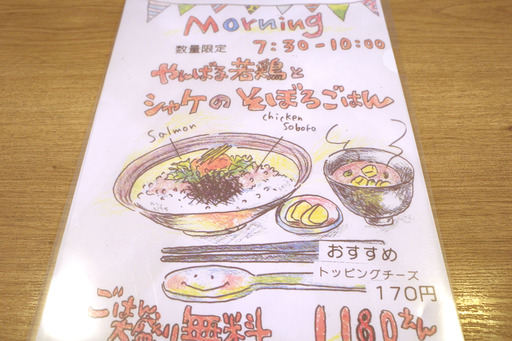 Morning
数量限定 7:30-10:00
やんばる若鶏と
シャケのそぼろごはん
Salmon
chicken
Soboro
おすすめ
トッピングチーズ
170円
ごはん
大盛り無料 1180えん